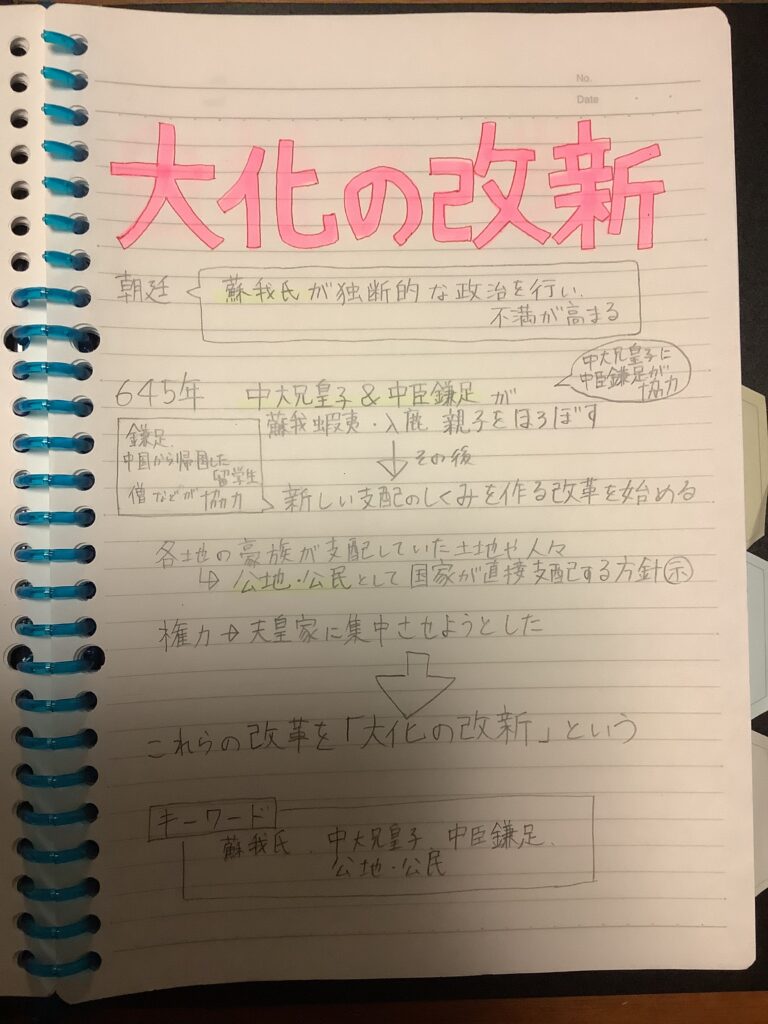 No.
Date
大化の改新
朝廷
蘇我氏が独断的な政治を行い、
不満が高まる
中大兄皇子に
中臣鎌足が
協力
645年 中大兄皇子&中臣鎌足が
蘇我蝦夷・入鹿 親子をほろぼす
その後
鎌足、
中国から帰国した
留学生
僧などが協力
新しい支配のしくみを作る改革を始める
各地の豪族が支配していた土地や人々
↳公地・公民として国家が直接支配する方針㊟
権力→天皇家に集中させようとした
これらの改革を「大化の改新」という
キーワード
蘇我氏、中大兄皇子、中臣鎌足、
公地・公民